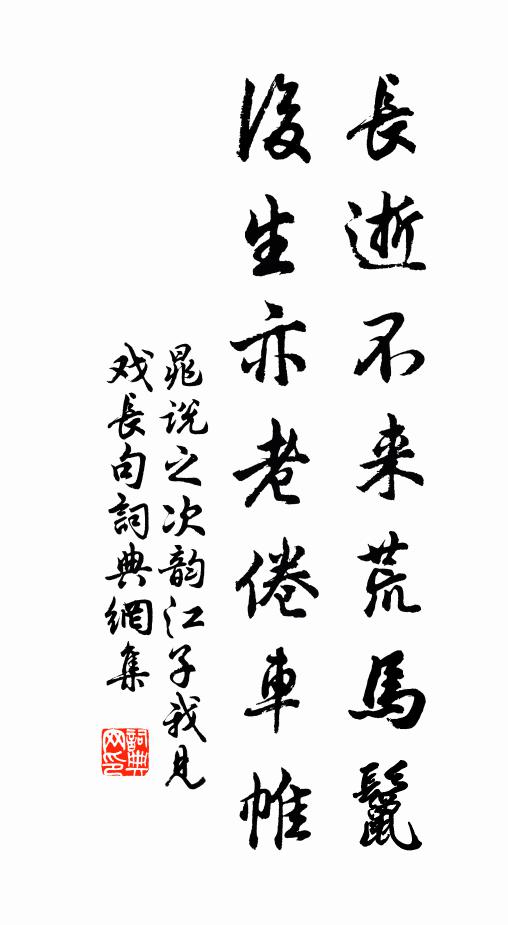 長逝不来荒馬鬣
後生亦老倦車帷
晁说之次韵江子我見
戏長句詞典網集
詞典网印